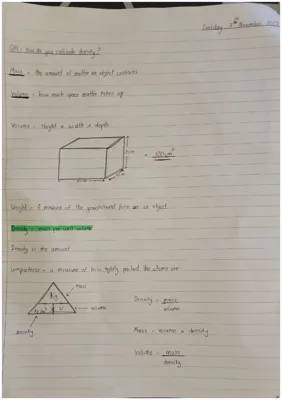 Tuesday 7th November
How do you calculate density?
Mass - the amount of matter an object contains
Volume - how much space matter takes up
Volume - Height x width x depth
Weight - A measure of the gravitational force on an object.
Density - mass per unit volume
Density is the amount
Compactness - a measure of how tightly packed the atoms are
mass
volume
density
Density = mass
volume
Mass = volume x density
Volume = mass
density